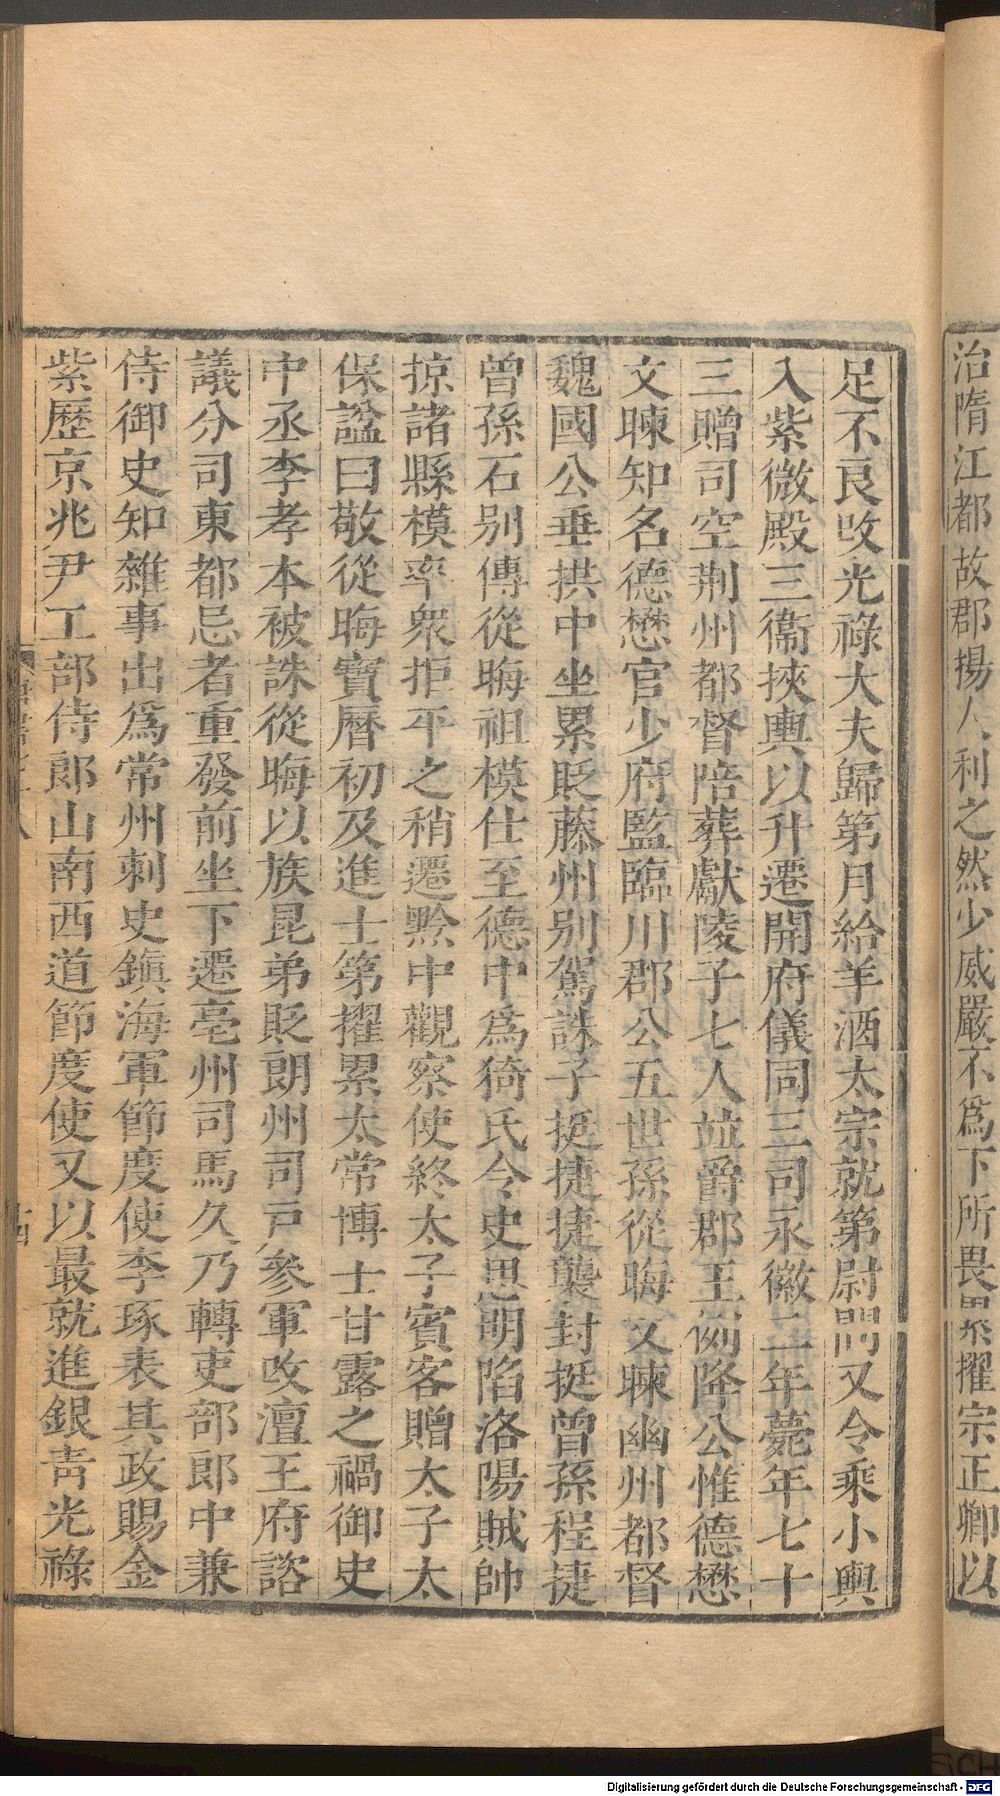 治隋江都故郡揚人利之然少威嚴不爲下所畏累擢宗正卿以
足不良改光祿大夫歸第月給羊酒太宗就第尉問又令乘小輿
入紫微殿三衞挾輿以升遷開府儀同三司永徽二年薨年七十
三贈司空荆州都督陪葬獻陵子七人竝爵郡王例降公惟德懋
文暕知名德懋官少府監臨川郡公五世孫從晦文暕幽州都督
魏國公垂拱中坐累貶藤州别駕誅子挺捷捷襲封挺曾孫程捷
曾孫石别傳從晦祖模仕至德中爲猗氏令史思明陷洛陽賊帥
掠諸縣模率衆拒平之稍遷黔中觀察使終太子賓客贈太子太
保諡曰敬從晦寶曆初及進士第擢累太常博士甘露之禍御史
中丞李孝本被誅從晦以族昆弟貶朗州司戸參軍改澶王府諮
議分司東都忌者重發前坐下遷亳州司馬久乃轉吏部郎中兼
侍御史知雜事出爲常州刺史鎭海軍節度使李琢表其政賜金
紫歷京兆尹工部侍郎山南西道節度使又以最就進銀靑光祿
Digitalisierung gefördert durch die Deutsche Forschungsgemeinschaft - DFG